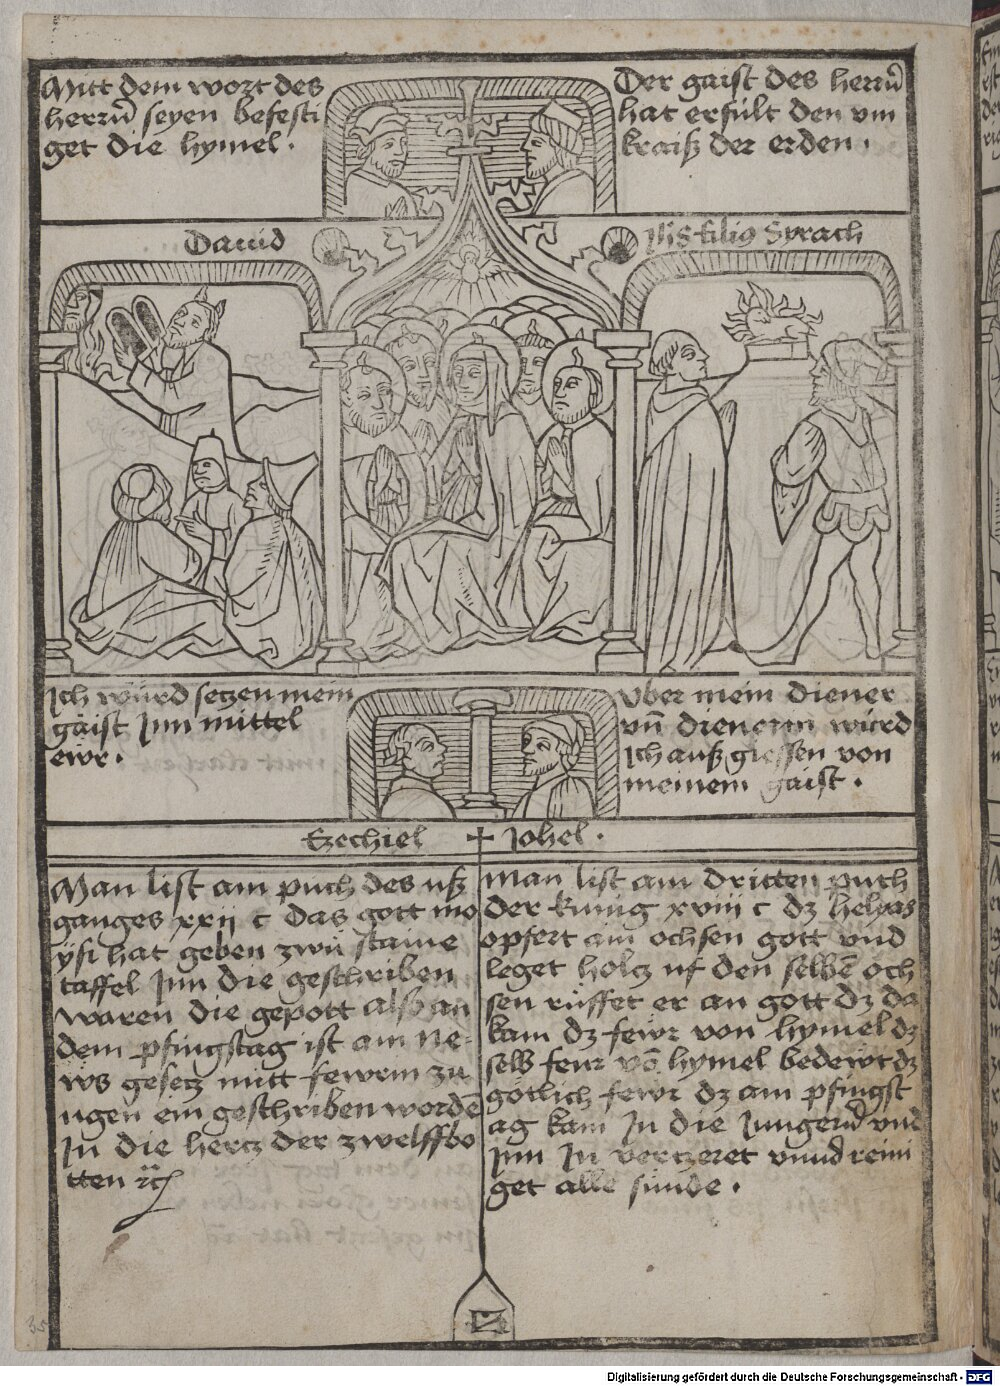 Mitt dem wort des
herrn̄ seyen befesti
get die hymel .
Der gaist des herrn̄
hat erfült den vm
kraiß der erden .
Dauid
Jhs filius Syrach
Ich würd setzen mein
gaist Jnn mittel
ewr .
Vber mein diener
vn̄ dienerin würd
Ich außgiessen von
meinem gaist .
Ezechiel ✝ Johel .
Man list am puch des usz
ganges xxij c das gott mo
ysi hat geben zwu staine
taffel Jnn die geschriben
waren die gepott also an
dem pfingstag ist am ne-
ws gesetz mitt fewrin zu
ngen ein geschriben wordē
Jn die hertz der zwelffbo
tten ꝛc
Man list am dritten puch
der kunig xviij c dz helyas
opfert ain ochsen gott vnd
leget holtz uf den selbē och
sen rüffet er an gott dz da
kam dz fewr von hymel dz
selb feur vō hymel bedewt dz
götlich fewr dz am pfingst
ag kam Jn die Jungern̄ vnd
Jnn Jn vertzeret vnnd reini
get alle sünde .
35
Digitalisierung gefördert durch die Deutsche Forschungsgemeinschaft - DFG